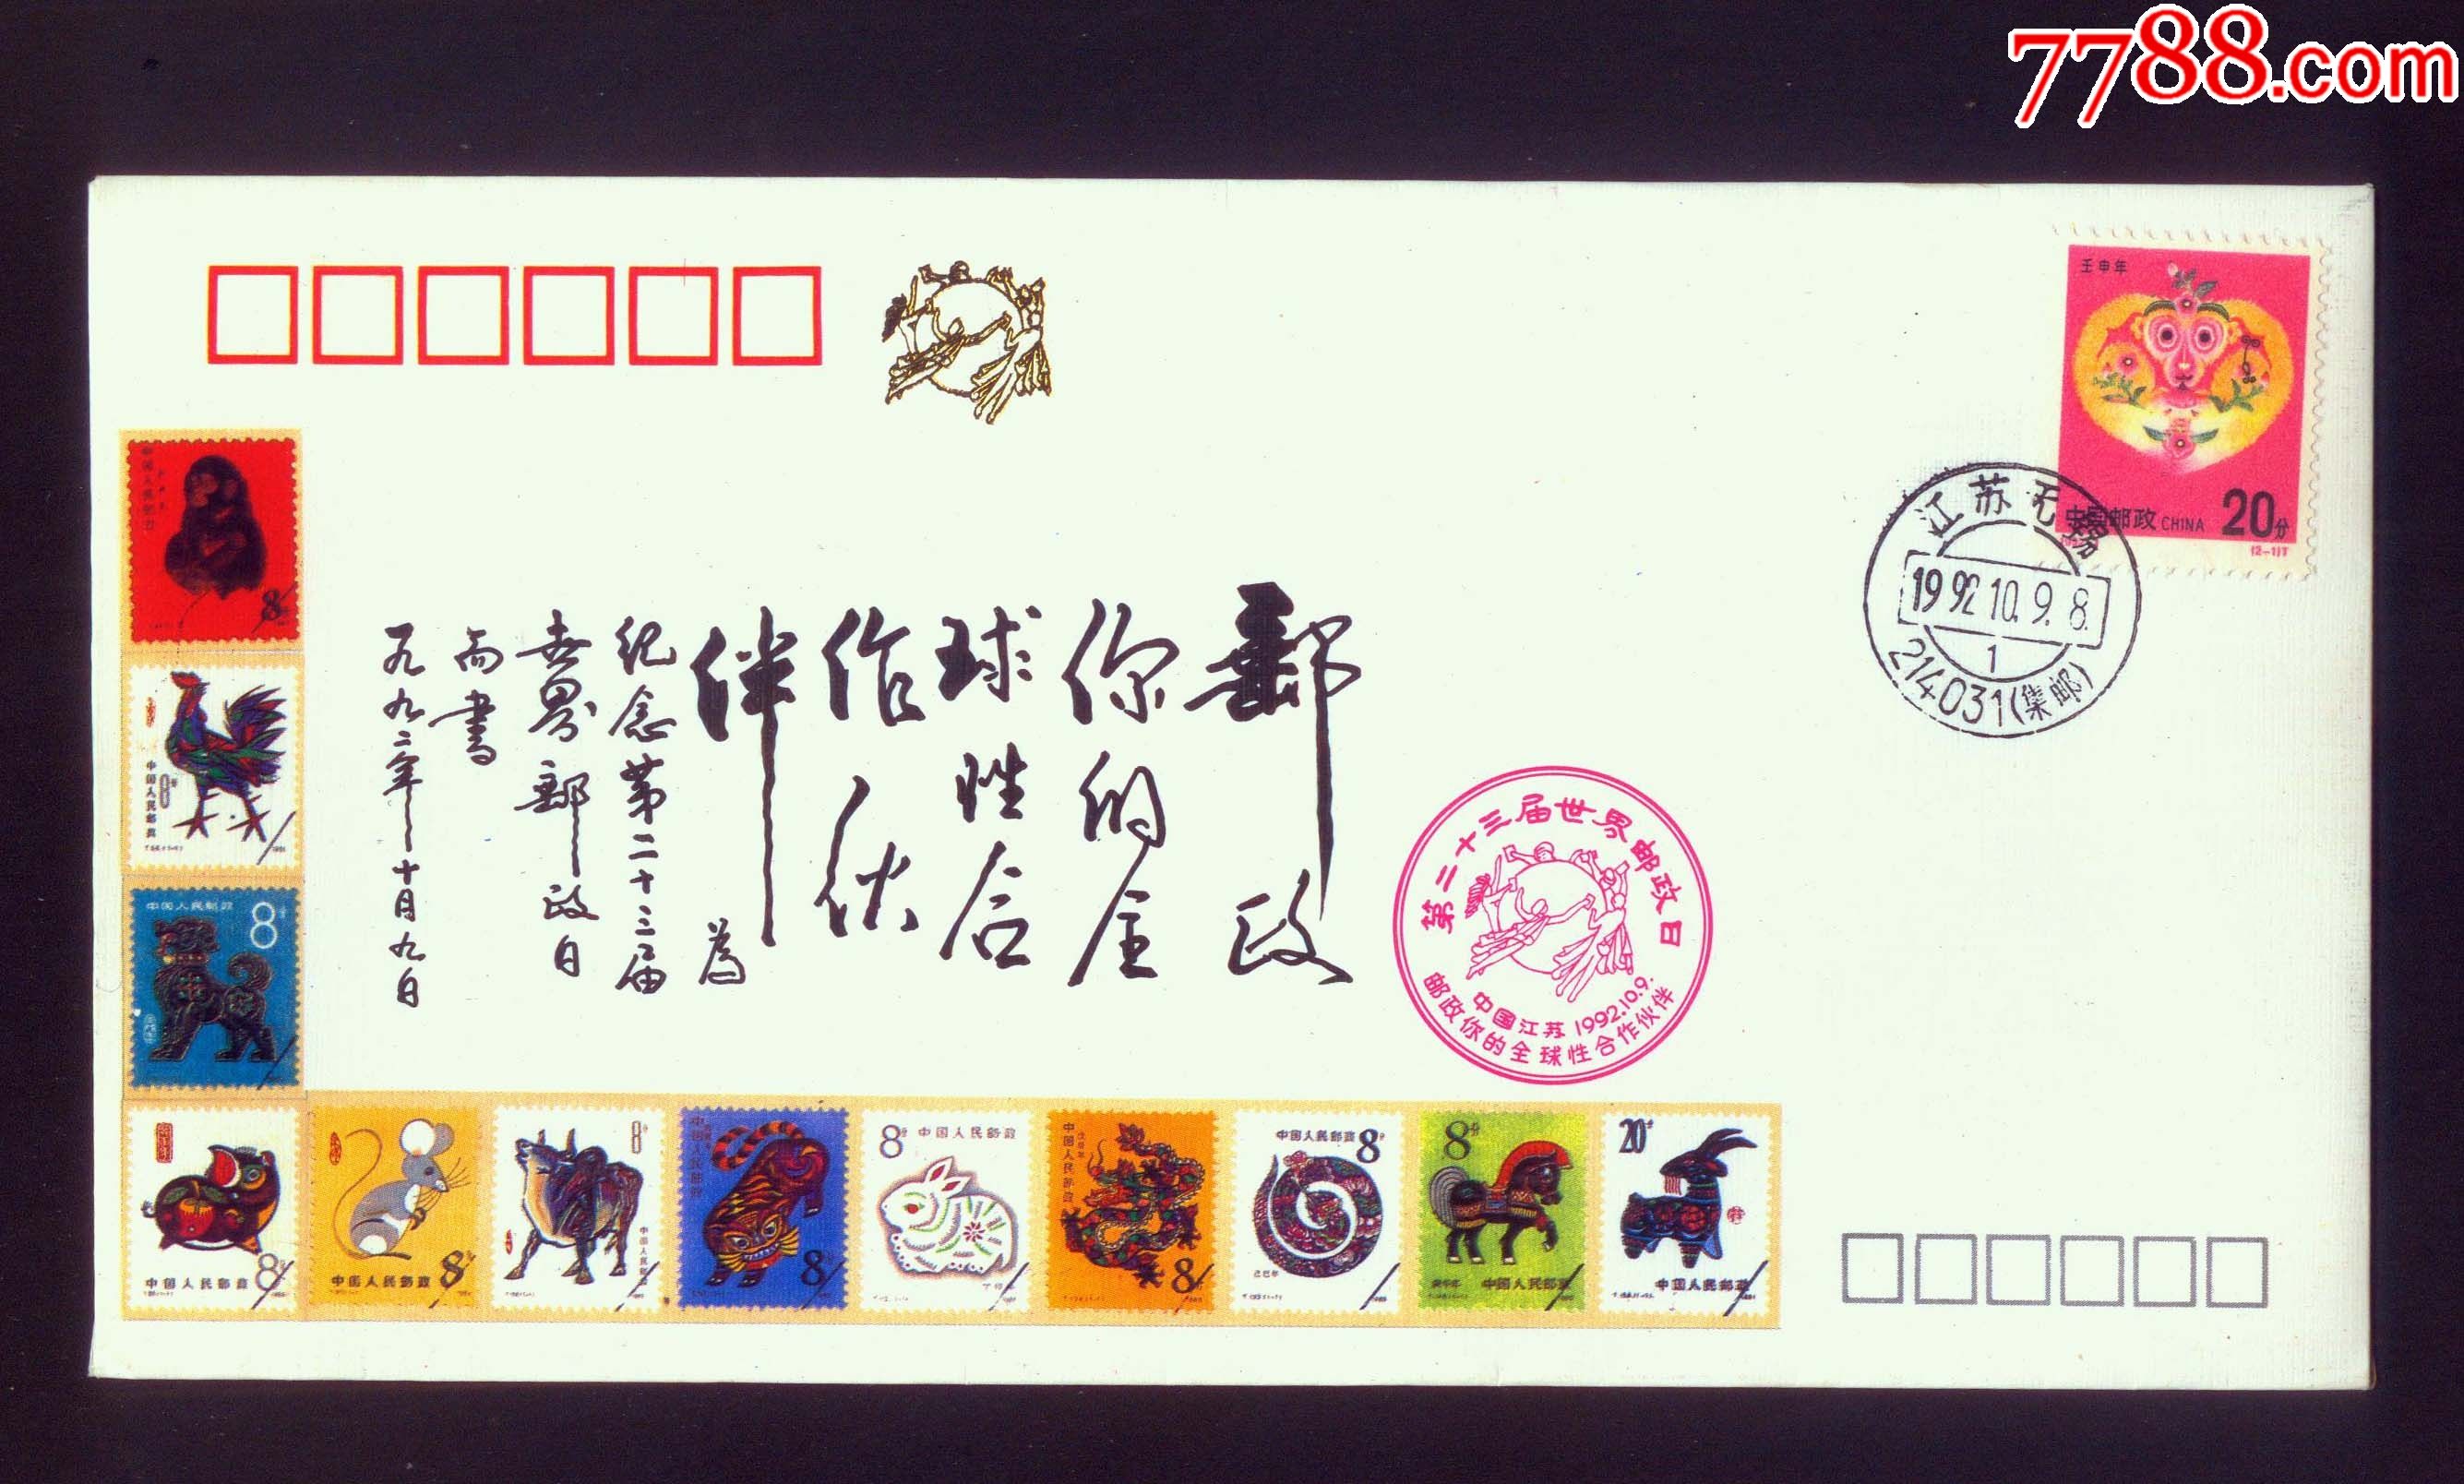 7788.com
壬申年
中国邮政 CHINA 20分
(2-1)T
江苏无锡
1992.10.9.8.
1
214031(集邮)
郵政
你的全
球性合
作伙
伴
為
纪念第二十三届
世界郵政日
而書
一九九二年十月九日
第二十三届世界邮政日
中国江苏 1992.10.9.
邮政你的全球性合作伙伴
中国人民邮政
8分
中国人民邮政
8分
中国人民邮政 8分
中国人民邮政 8分
中国人民邮政 8分
8分
中国人民邮政
中国人民邮政
8分
8分 中国人民邮政
中国人民邮政
戊辰年
8分
中国人民邮政 8分
己巳年
8分
庚午年 中国人民邮政
20分
中国人民邮政